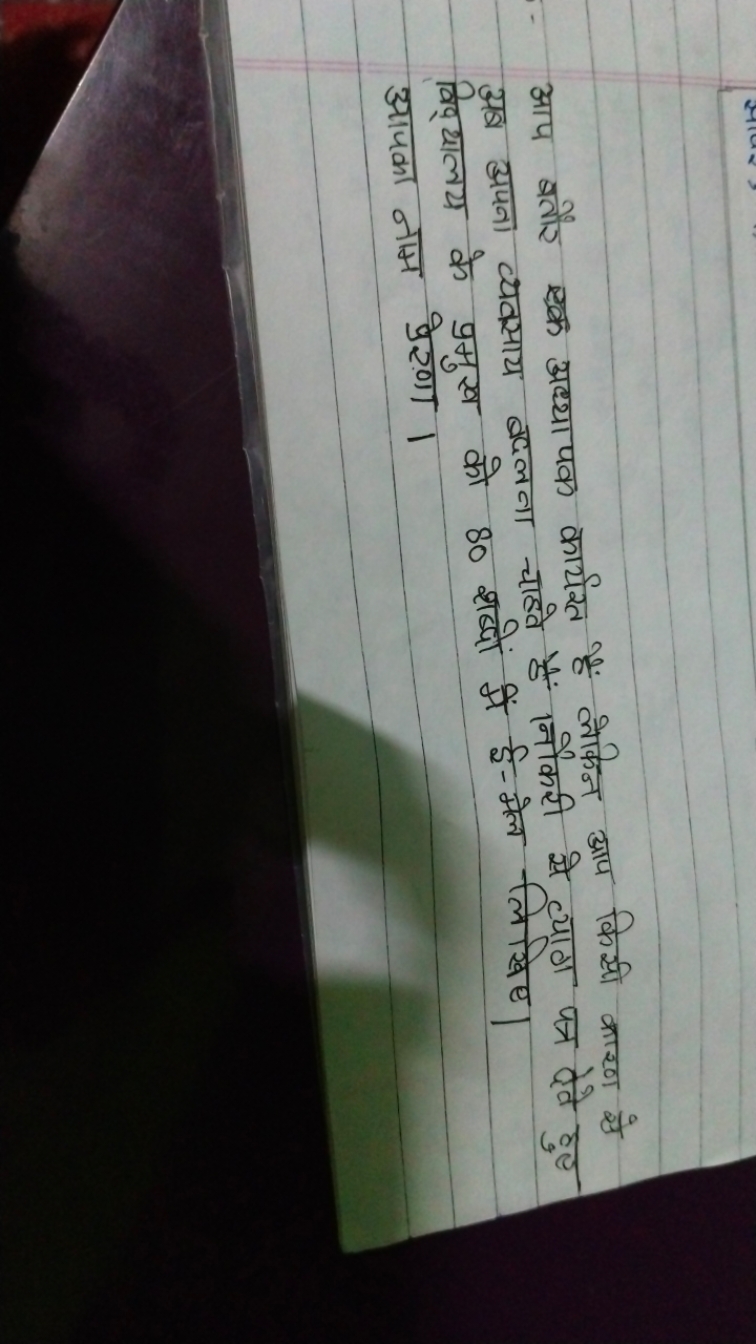 आप बतौर एक अध्यापक कार्यरत हैं लेकिन आप किसी कारण से
अब अपना व्यवसाय बदलना चाहते हैं। नौकरी से त्याग पत्र देते हुए
विद्यालय के प्रमुख को 80 शब्दों में ई-मेल लिखिए।
आपका नाम प्रेरणा।